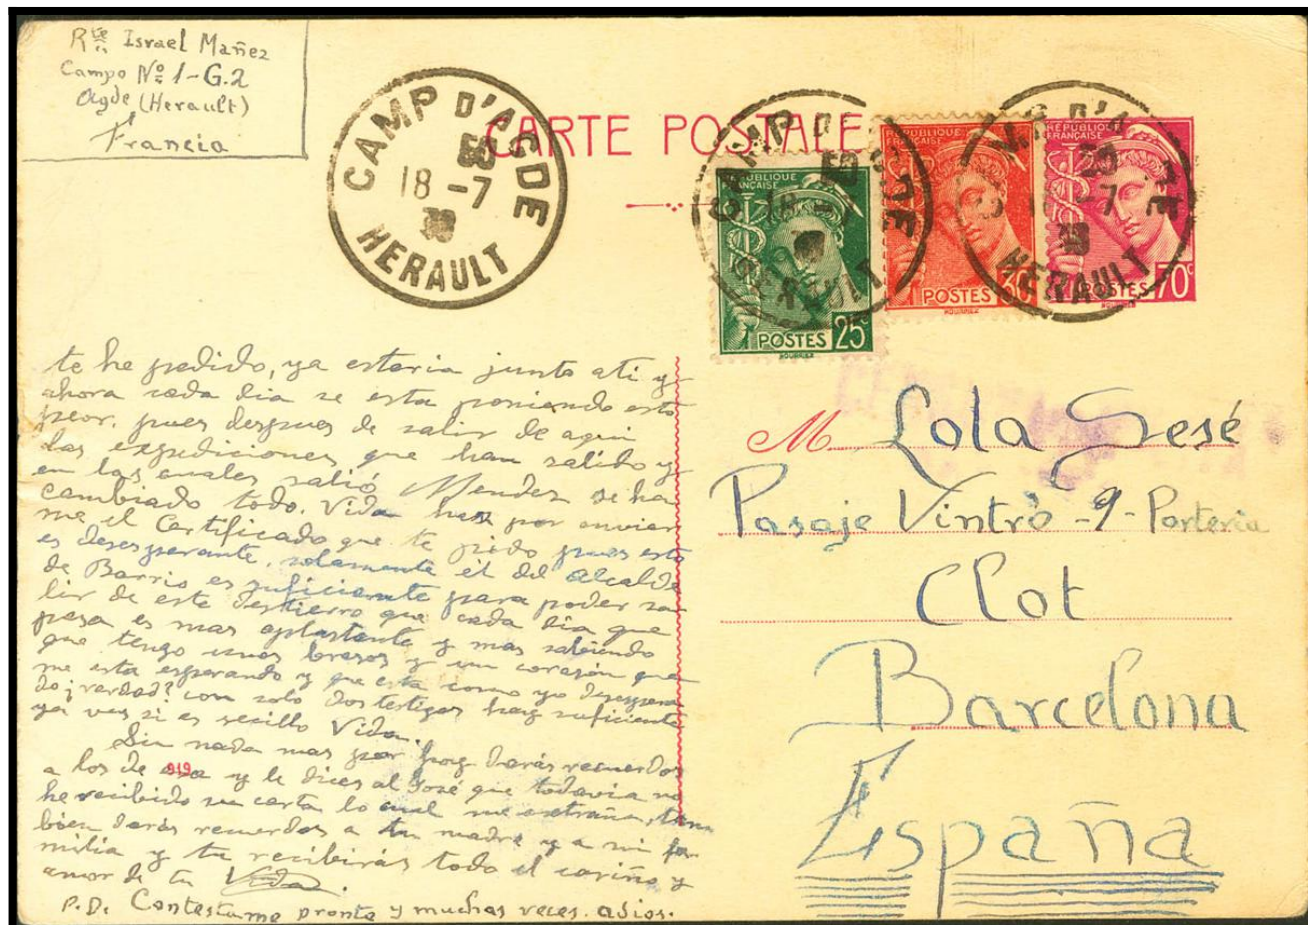 Rte Israel Mañez
Campo Nº 1-G.2
Agde (Herault)
Francia
CAMP D'AGDE
18-7
HERAULT
CARTE POSTALE
CAMP D' AGDE
18-7
HERAULT
REPUBLIQUE
FRANÇAISE
POSTES 25c
REPUBLIQUE
FRANÇAISE
POSTES 30
REPUBLIQUE
FRANÇAISE
POSTES 70c
HERAULT
te he pedido, ya estaria junto ati y
ahora cada dia se esta poniendo esto
peor, pues despues de salir de aqui
las expediciones que han salido y
en las cuales salió Mendez se ha
cambiado todo. Vida haz por enviar
me el Certificado que te pido pues esto
es desesperante, solamente el del alcalde
de Barrio es suficiente para poder sa
lir de este destierro que cada dia que
pasa es mas aplastante y mas sabiendo
que tengo unos brazos y un corazón que
me esta esperando y que esta como yo desespera
do ¡verdad? con solo dos testigos hay suficiente
ya ves si es secillo Vida.
Sin nada mas por hoy darás recuerdos
a los de esa y le dices al José que todavia no
he recibido su carta lo cual me extraña, tam
bien darás recuerdos a tu madre y a mi fa
milia y tu recibirás todo el cariño y
amor de tu Vida.
P.D. Contestame pronto y muchas veces. adios.
919
M. Lola Sesé
Pasaje Vintró -9- Porteria
Clot
Barcelona
España